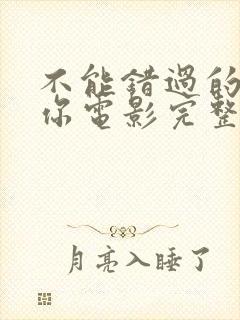 不能错过的
你电影完整
月亮入睡了